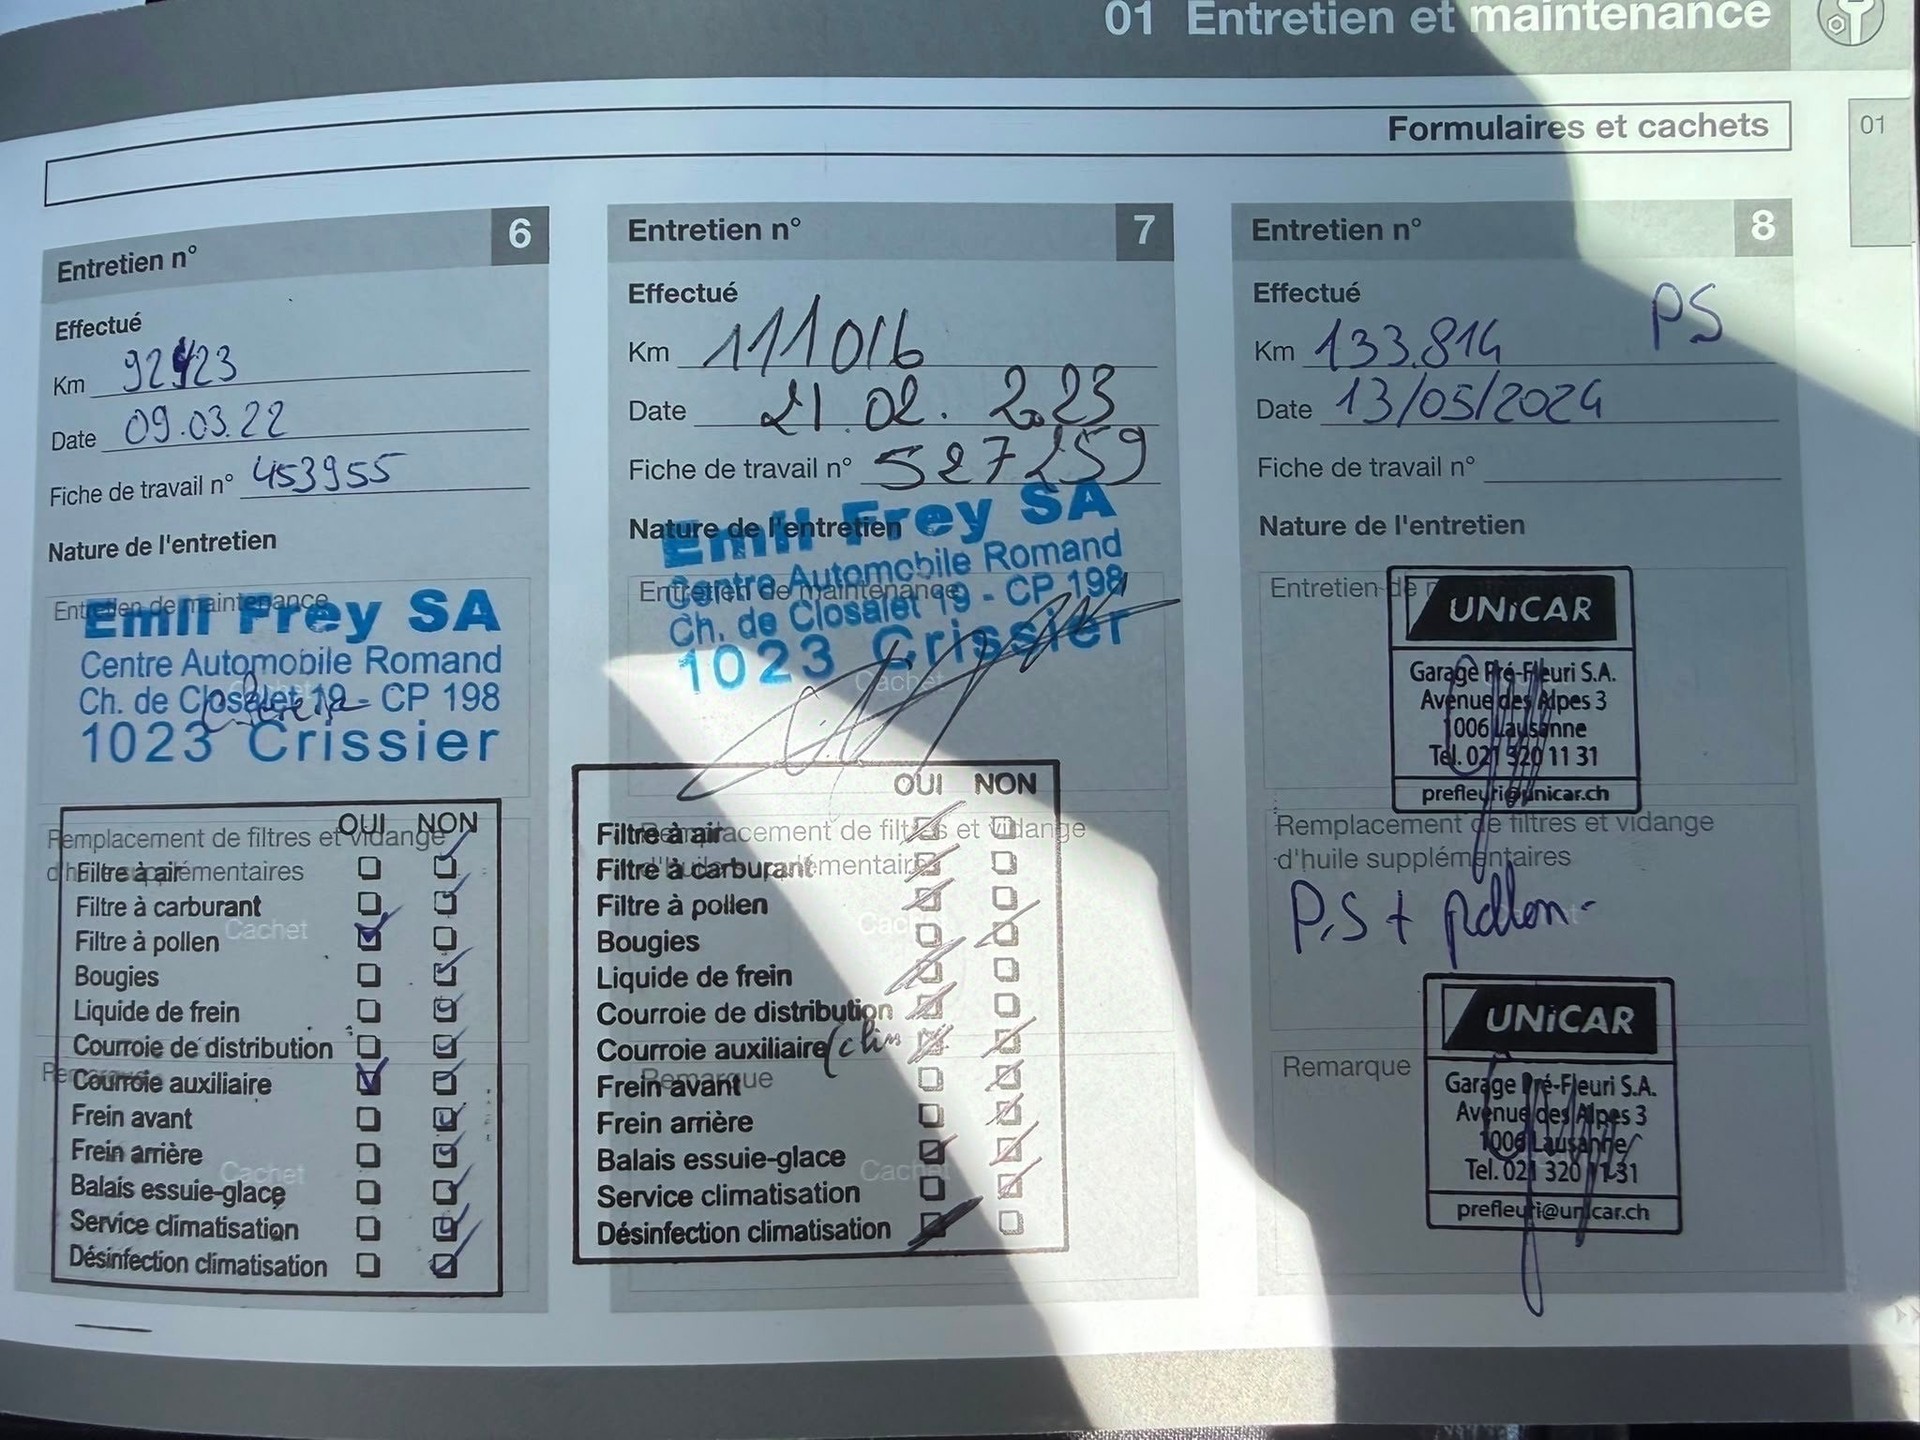 01 Entretien et maintenance
Formulaires et cachets
01
Entretien n° 6
Effectué
Km
Date 09.03.22
Fiche de travail n° 453955
Nature de l'entretien
Entretien de maintenance
Emil Frey SA
Centre Automobile Romand
Ch. de Closalet 19 - CP 198
1023 Crissier
OUI NON
Remplacement de filtres et vidange
d'huile supplémentaires
Filtre à air
Filtre à carburant
Filtre à pollen
Cachet
Bougies
Liquide de frein
Courroie de distribution
Remarque
Courroie auxiliaire
Frein avant
Frein arrière
Cachet
Balais essuie-glace
Service climatisation
Désinfection climatisation
Entretien n° 7
Effectué
Km 111016
Date 21.02.2023
Fiche de travail n° 527259
Nature de l'entretien
Entretien de maintenance
Emil Frey SA
Centre Automobile Romand
Ch. de Closalet 19 - CP 198
1023 Crissier
Cachet
OUI NON
Remplacement de filtres et vidange
d'huile supplémentaires
Filtre à air
Filtre à carburant
Filtre à pollen
Cachet
Bougies
Liquide de frein
Courroie de distribution
Courroie auxiliaire (clim
Remarque
Frein avant
Frein arrière
Balais essuie-glace
Cachet
Service climatisation
Désinfection climatisation
Entretien n° 8
Effectué
PS
Km 133.814
Date 13/05/2024
Fiche de travail n°
Nature de l'entretien
Entretien de
UNiCAR
Garage Pré-Fleuri S.A.
Avenue des Alpes 3
1006 Lausanne
Tél. 021 320 11 31
prefleuri@unicar.ch
Remplacement de filtres et vidange
d'huile supplémentaires
P.S + pollen-
Remarque
UNiCAR
Garage Pré-Fleuri S.A.
Avenue des Alpes 3
1006 Lausanne
Tel. 021 320 11 31
prefleuri@unicar.ch